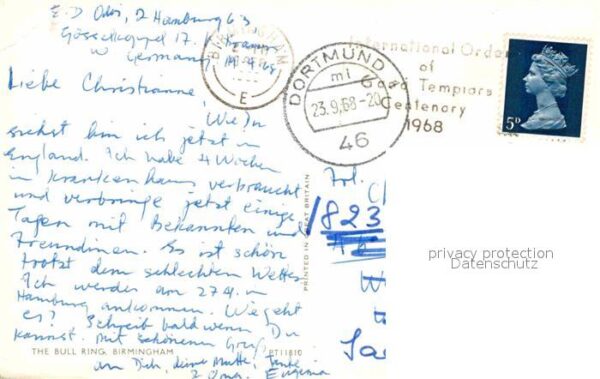 E. D
2 Hamburg 63
17.
W. Germany
Liebe Christianne,
Wie Du
siehst bin ich jetzt in
England. Ich habe 4 Wochen
im Krankenhaus verbracht
und verbringe jetzt einige
Tage mit Bekannten und
Freundinnen. Es ist schön
trotz dem schlechten Wetter
Ich werde am 27.9. in
Hamburg ankommen. Wie geht
es? Schreib bald wenn Du
kannst. Mit schönem Gruß
an Dich, deine Mutti,
Eugenia
THE BULL RING, BIRMINGHAM
PT11810
PRINTED IN GREAT BRITAIN
BIRMINGHAM
E
DORTMUND
mi
23.9.68-20
46
International Order
of
Good Templars
Centenary
1968
5D
Frl.
1823
privacy protection
Datenschutz